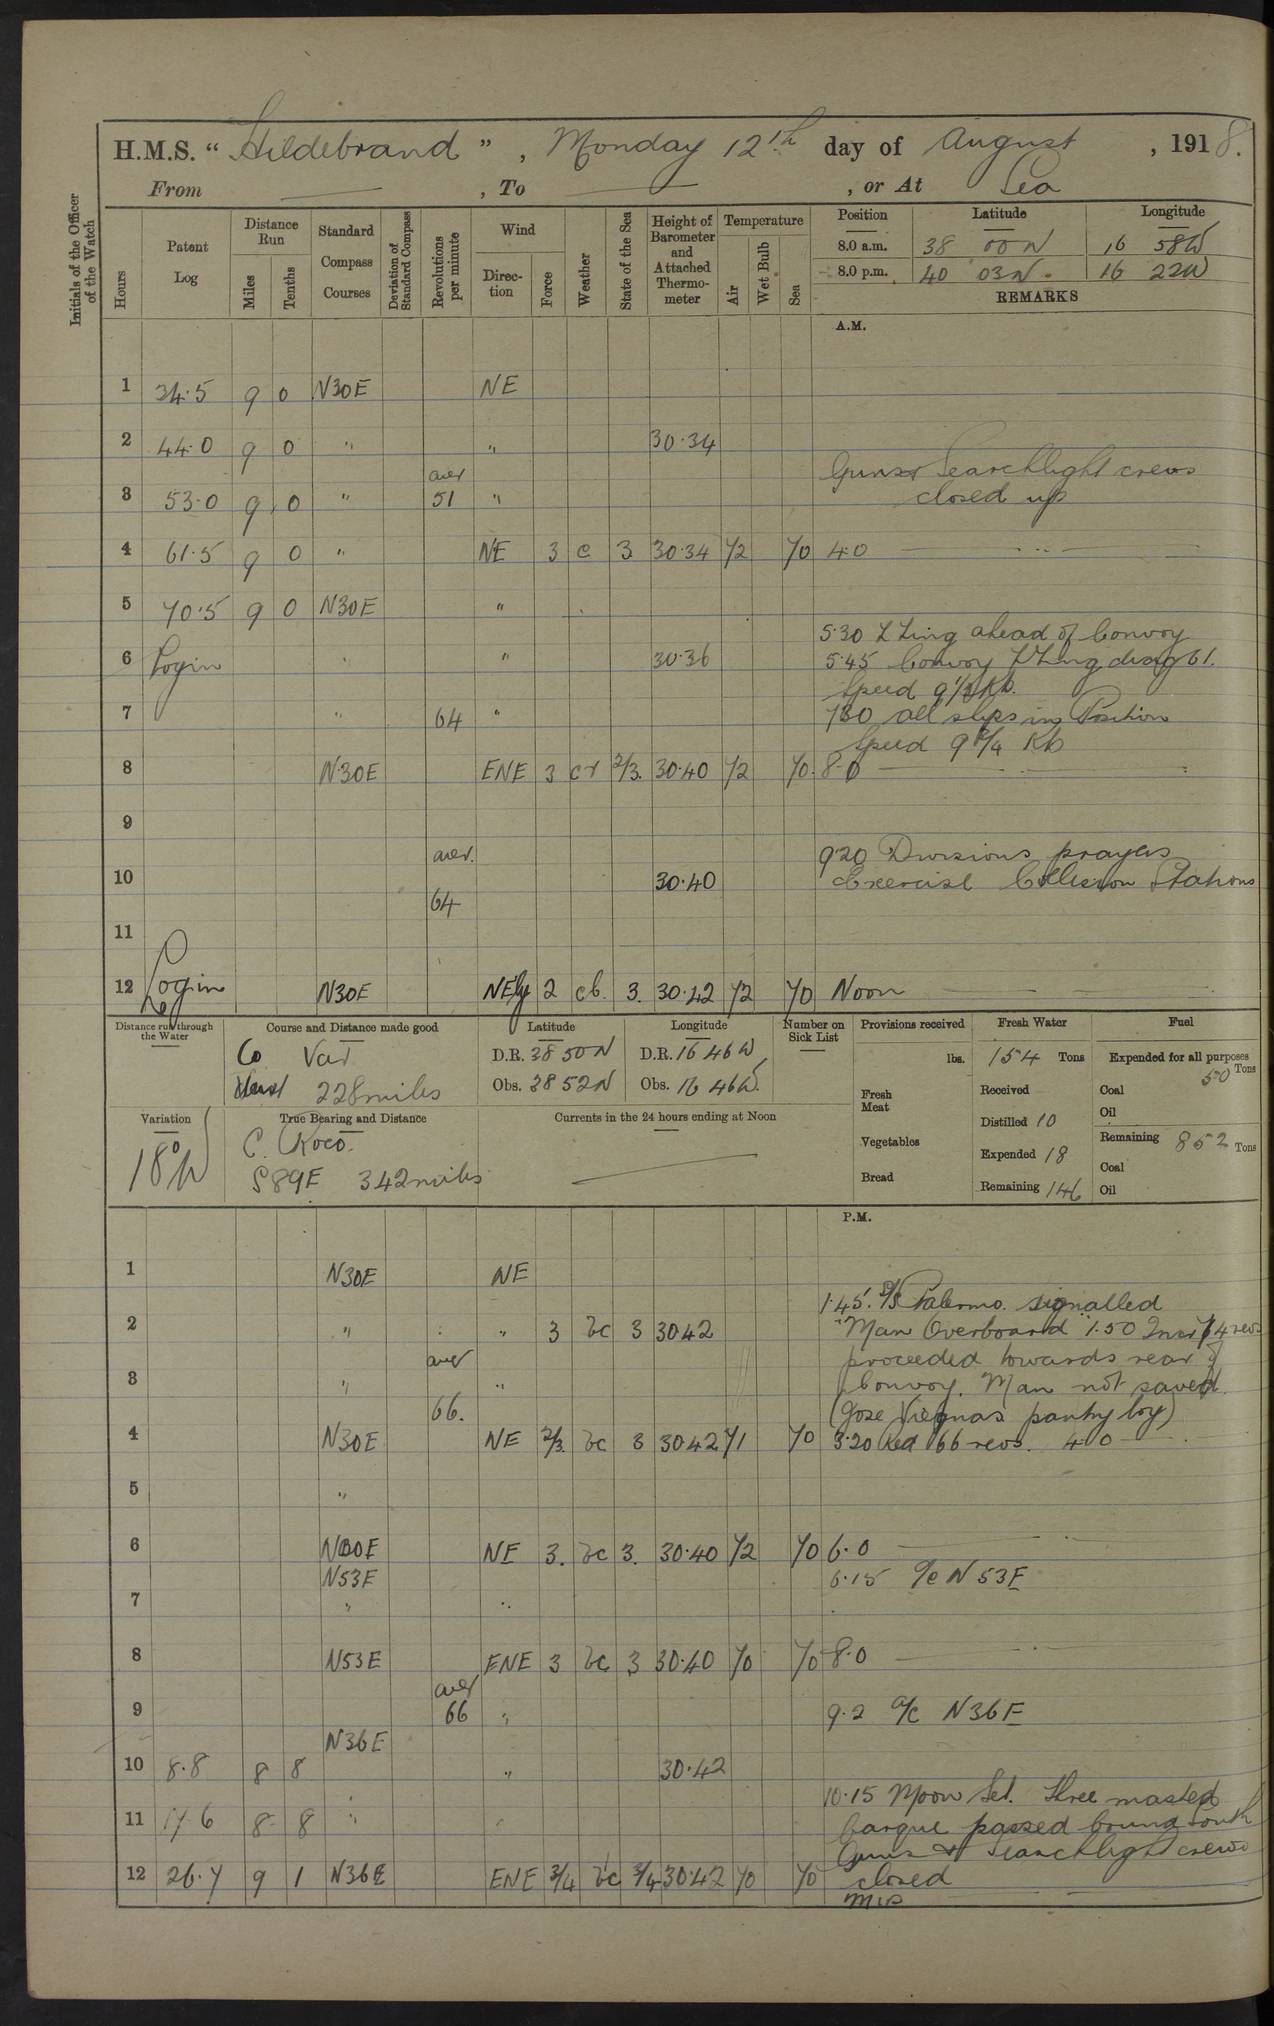 H.M.S. “ Hildebrand ” , Monday 12th day of August , 1918.
From — , To — , or At Sea
Initials of the Officer of the Watch
Hours
Patent Log
Distance Run
Miles
Tenths
Standard Compass Courses
Deviation of Standard Compass
Revolutions per minute
Wind
Direction
Force
Weather
State of the Sea
Height of Barometer and Attached Thermometer
Temperature
Air
Wet Bulb
Sea
Position Latitude Longitude
8.0 a.m. 38 00 N 16 58 W
8.0 p.m. 40 03 N 16 22 W
REMARKS
A.M.
1 34.5 9 0 N30E NE
2 44.0 9 0 " " 30.34
Guns & Searchlight crews
aver
3 53.0 9 0 " 51 " closed up
4 61.5 9 0 " NE 3 c 3 30.34 72 70 4.0
5 70.5 9 0 N30E "
5.30 ahead of Convoy
6 Log in " " 30.36 5.45 Convoy 61.
Speed 9 1/2 Kts.
7 " 64 " 7.30 all ships in Position
Speed 9 3/4 Kts
8 N30E ENE 3 cr 2/3. 30.40 72 70. 8.0
9
aver. 9.20 Divisions prayers
10 30.40 Exercise Collision Stations
64
11
12 Log in N30E NEly 2 cb. 3. 30.42 72 70 Noon
Distance run through the Water
Course and Distance made good
Co Var
228 miles
Latitude
D.R. 38 50 N
Obs. 38 52 N
Longitude
D.R. 16 46 W
Obs. 16 46 W.
Number on Sick List
Provisions received
lbs.
Fresh Meat
Vegetables
Bread
Fresh Water
154 Tons
Received
Distilled 10
Expended 18
Remaining 146
Fuel
Expended for all purposes
50 Tons
Coal
Oil
Remaining 852 Tons
Coal
Oil
Variation
18° W
True Bearing and Distance
C. Roco.
S 89 E 342 miles
Currents in the 24 hours ending at Noon
P.M.
1 N30E NE
1.45. S/S Palermo. signalled
2 " " 3 bc 3 30.42 "Man Overboard 1.50 74 revs
aver proceeded towards rear of
3 " " Convoy. Man not saved.
66. (Jose Viegnas pantry boy)
4 N30E NE 2/3. bc 3 30.42 71 70 3.20 Red 66 revs. 4.0
5 "
6 N30E NE 3. bc 3. 30.40 72 70 6.0
N53E 6.15 a/c N 53 E
7 " "
8 N53E ENE 3 bc 3 30.40 70 70 8.0
aver
9 66 " 9.2 a/c N36E
N36E
10 8.8 8 8 " 30.42
10.15 Moon Set. Three masted
11 17.6 8 8 " barque passed bound South
Guns & Searchlight crews
12 26.7 9 1 N36E ENE 3/4 bc 3/4 30.42 70 70 closed
Mid